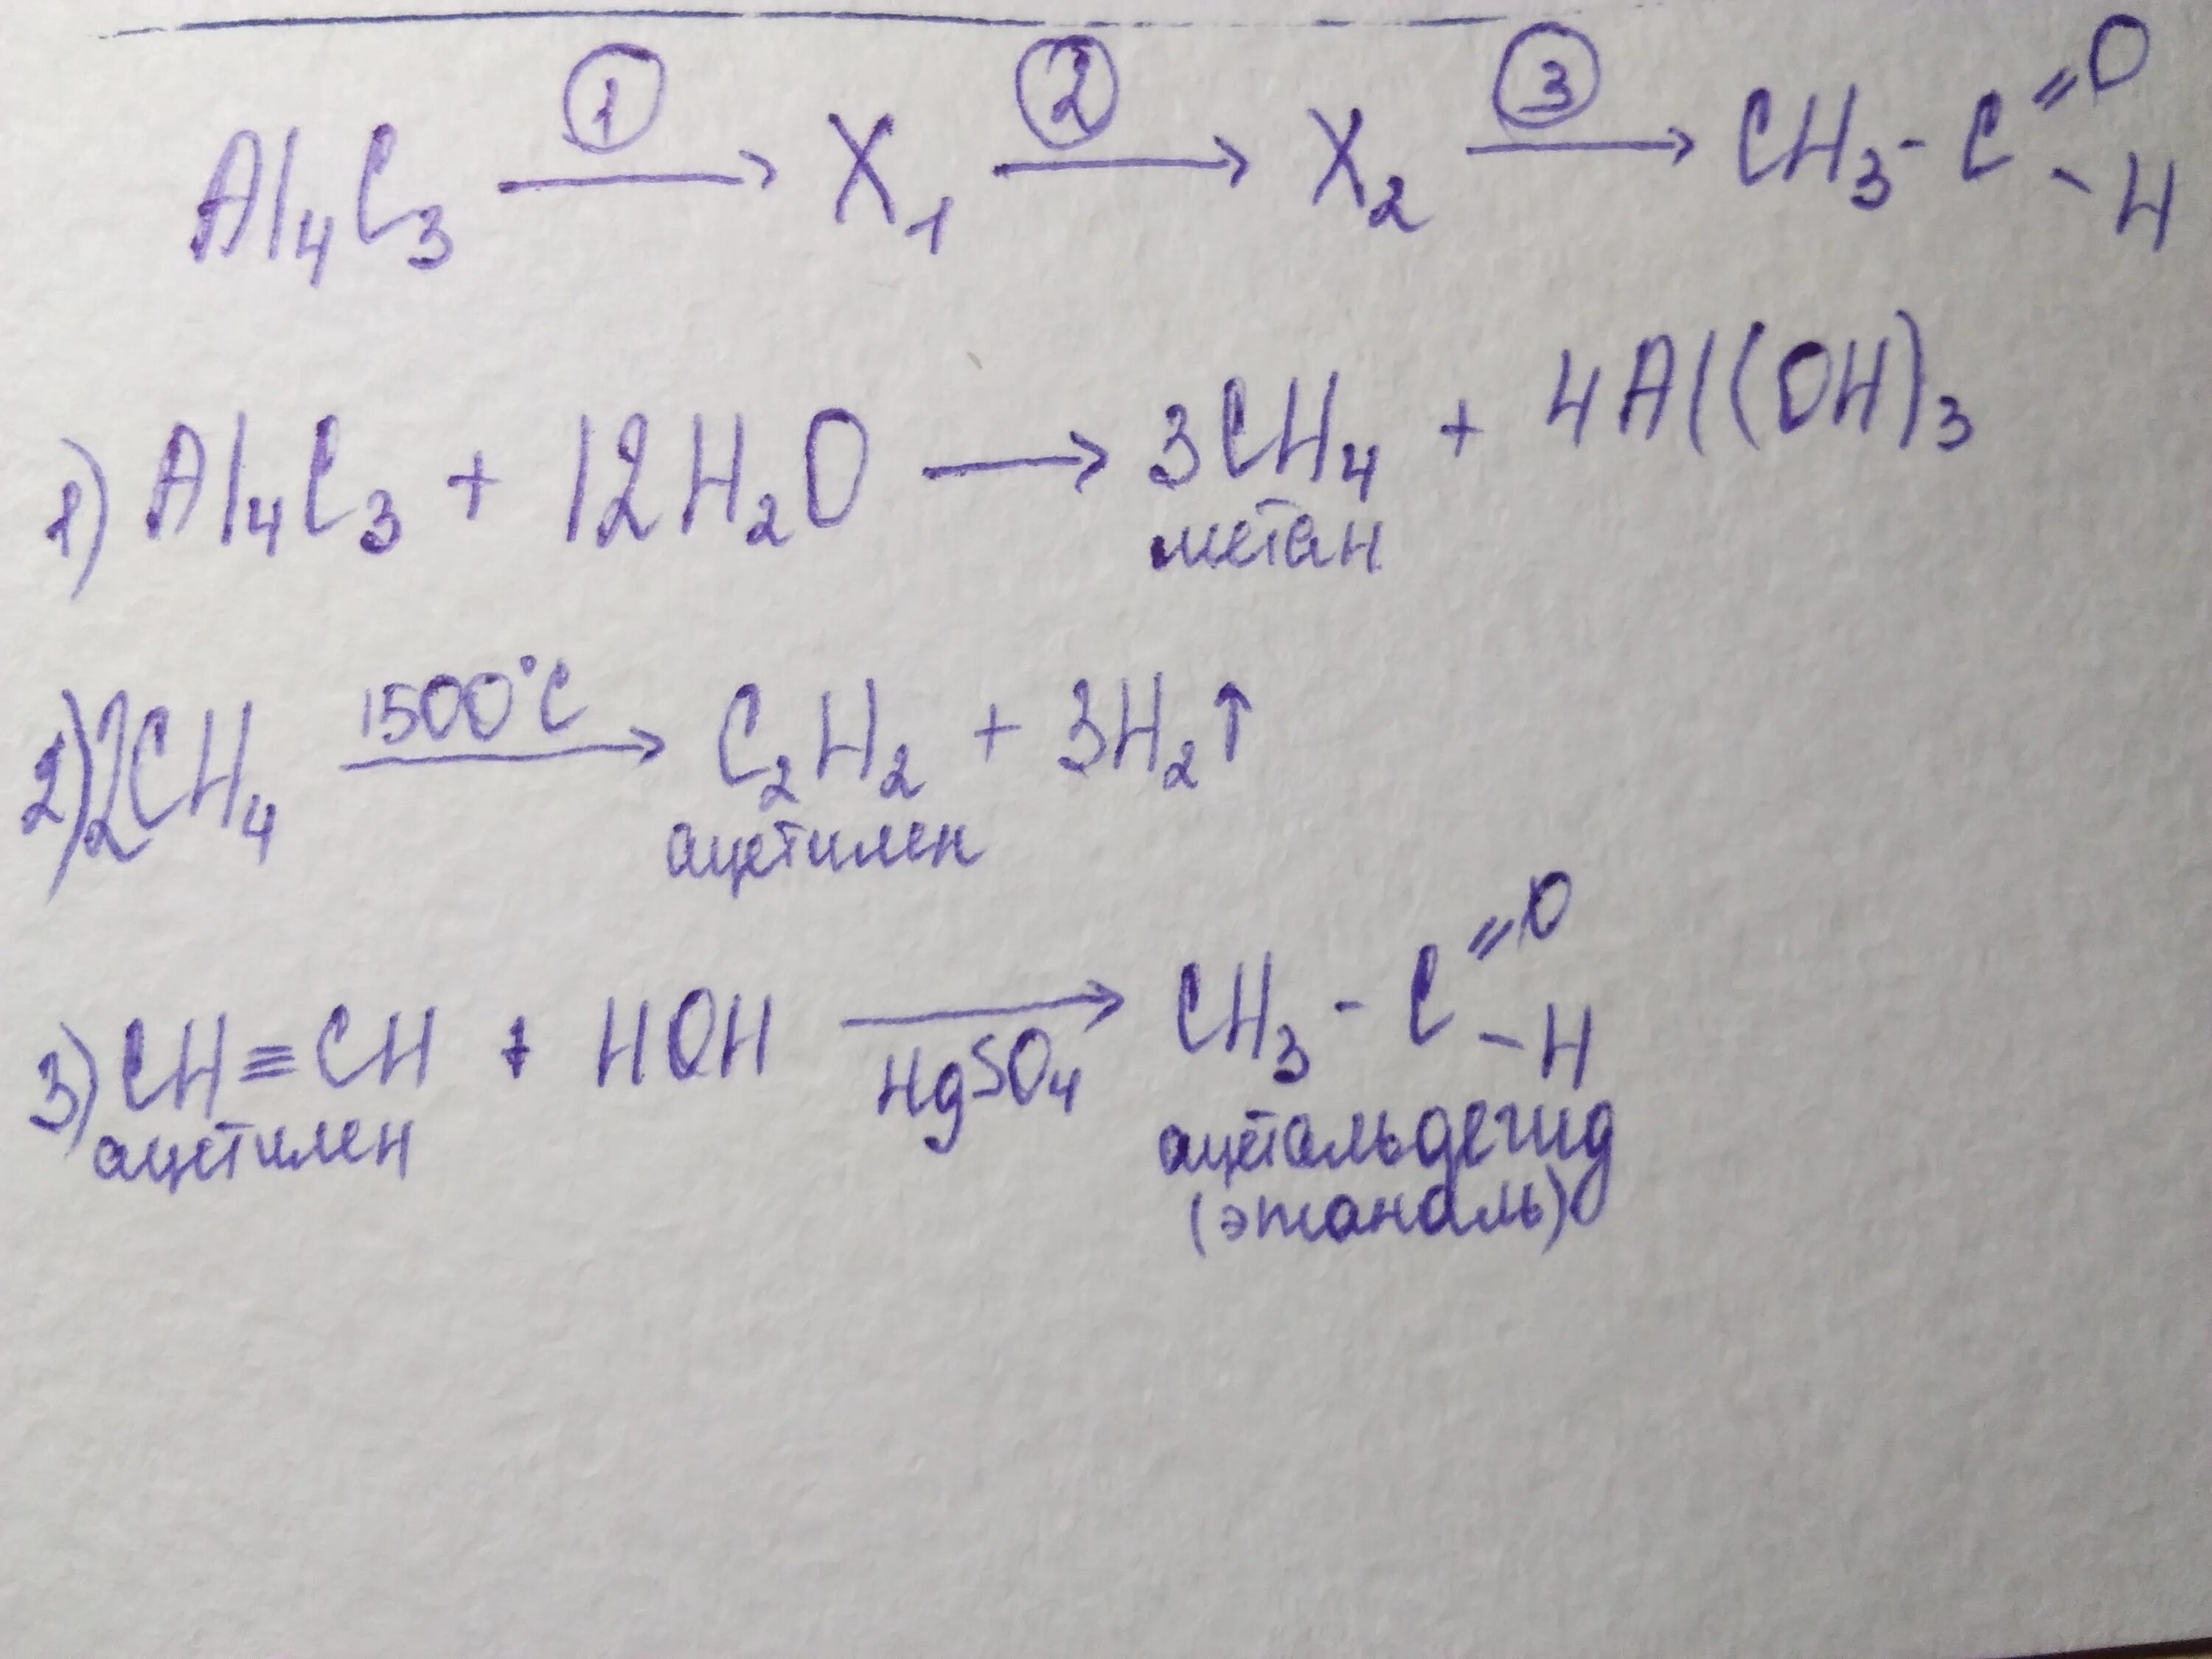 Al₄C₃ ①⟶ X₁ ②⟶ X₂ ③⟶ CH₃-C=O-H
1) Al₄C₃ + 12H₂O ⟶ 3CH₄ + 4Al(OH)₃
метан
2) 2CH₄ 1500°C⟶ C₂H₂ + 3H₂↑
ацетилен
3) CH≡CH + HOH ⟶ HgSO₄ CH₃-C=O-H
ацетилен ацетальдегид
(этаналь)